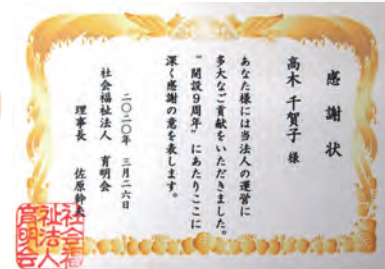 感謝状
高木 千賀子 様
あなた様には当法人の運営に
多大なご貢献をいただきました。
“開設9周年”にあたりここに
深く感謝の意を表します。
二〇二〇年 三月二六日
社会福祉法人 育明会
理事長 佐原幹夫
社会福
祉法人
育明会